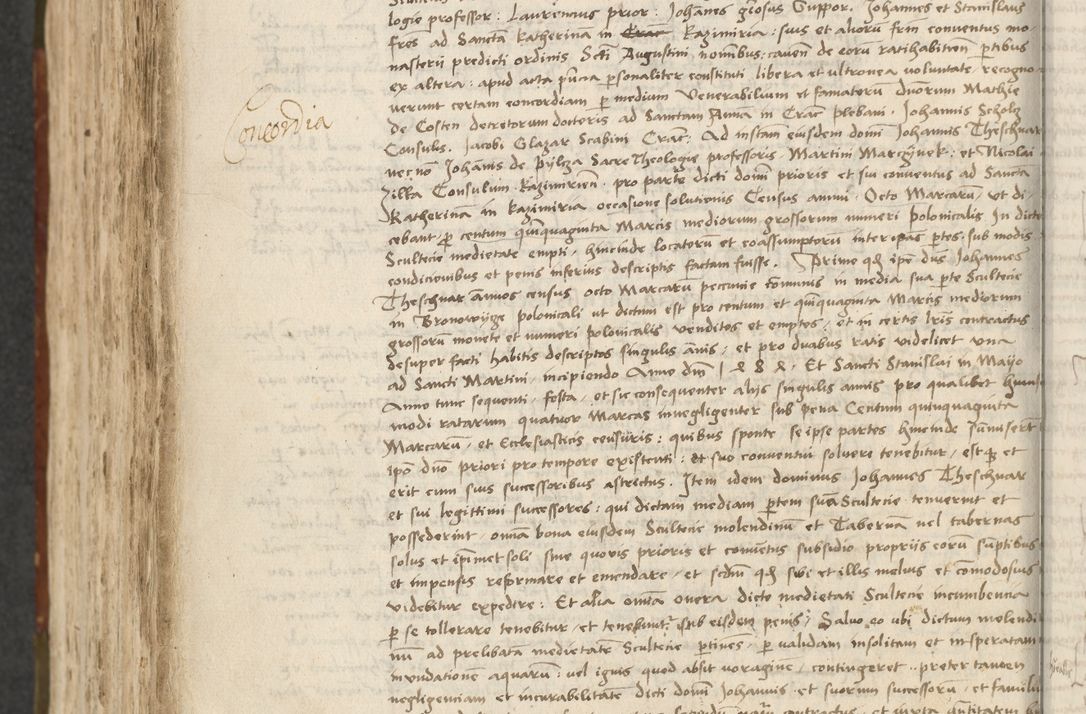 logie professor : Laurencius prior : Johanes glosus Suppor. Johannes et Stanislaus
fres ad Sanctā Katherinā in Crac Kazimiria : suis et alioru frm conventus mo-
nasterii predicti ordinis Scti Augustini nomibus : caven de eoru ratihabitioen ptibus
ex altera : apud acta pncia psonaliter constituti libera et ultronea voluntate recogno
verunt certam concordiam p medium Venerabilium et famatoru Duorum Mathie
de Costen decretorum doctoris ad Sanctam Annā in Crac plebani . Johannis Scholz
Concordia
Consulis . Jacobi Glazar Scabini Crac : Ad instam eiusdem domi Johannis Theschnar
necnō Johānis de Pylcza Sacre Theologie professoris Martini Marczynek : et Nicolai
Zilka Consulum Kazimirien . pro parte dicti domi prioris et sui conventus ad Sancta
Katherinā in Kazimiria occasione solutionis Census annui . Octo Marcarū . ut di-
cebant . p centum quinquaginta Marcis mediorum grossorum numeri polonicalis In dicte
Scultecie medietate empti . hincinde locatoru et coassumptoru inter ipas ptes sub modis
condicionibus et penis inferius descriptis factam fuisse . Primo qd ipe dns Johannes
Theschnar annuos census octo Marcarū peccunie cōmunis in media sua pte Scultecie
in Bronowycze polonicali ut dictum est pro centum et quinquaginta Marcis mediorum
grossoru monete et numeri polonicalis venditos et emptos . et in certis lris contractus
desuper facti habitis descriptos singulis annis : et pro duabus ratis videlicet una
ad Sancti Martini . incipiendo Anno dni Et Sancti Stanislai in Maijo
Anno tunc sequenti . festa . et sic consequenter alijs singulis annis pro qualibet huius
modi ratarum quatuor Marcas innegligenter sub pena Centum quinquaginta
Marcarū . et Ecclesiasticis censuris : quibus sponte se ipse partes hincinde
ipō dno priori pro tempore existenti : et suo conventui solvere tenebitur . est qz et
erit cum suis successoribus astrictus . Item idem dominus Johannes Theschnar
et sui legittimi successores : qui dictam mediam ptem suā Scultecie tenuerint et
possederint . omia bona eiusdem Scultecie molendinū et Tabernā vel tabernas
solus et ipimet soli sine quovis prioris et convetus subsidio proprijs eorū sūptibus
et impensis reformare et emendare . et scdm qd sibi et illis melius et cōmodosius
videbitur expedire : Et alia omia onera dicte medietati Scultecie incumbenna
p se tollerare tenebitur . et tenebunt sub eisdem penis : Salvo eo ubi dictum molendi
nū ad prelibatā medietatē Scultecie ptinēs . p validam insolitam et insperatam
inundationē aquarū : vel ignis quod absit voraginē . contingeret . preter tamen
negligenciam et incurabilitatē dicti domi Johannis et suorum successorū . et familie